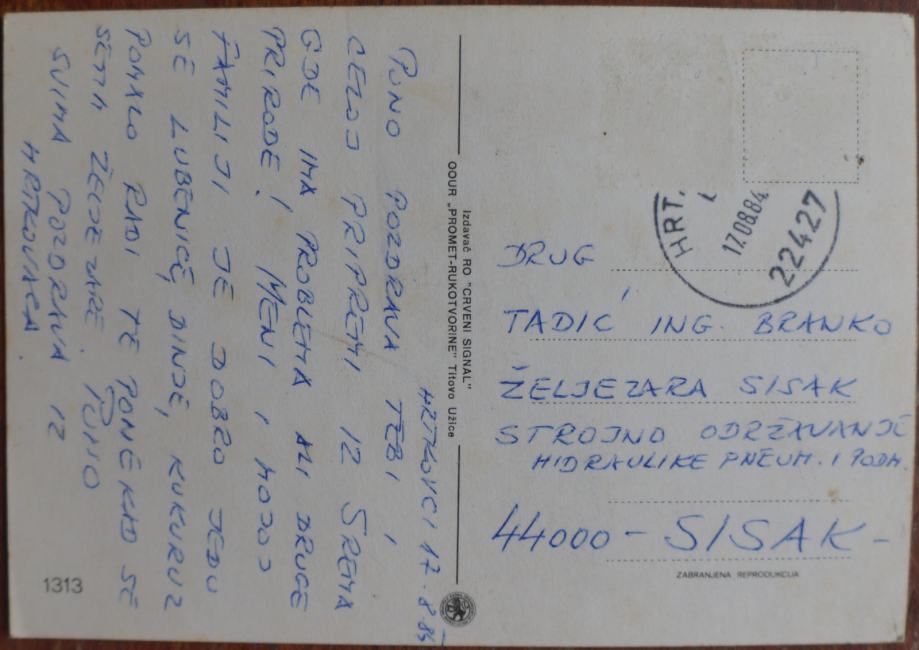 HRTKOVCI 17.8.84
PUNO POZDRAVA TEBI I
CELOJ PRIPREMI IZ SREMA
GDE IMA PROBLEMA ALI DRUGE
PRIRODE! MENI I MOJOJ
FAMILIJI JE DOBRO JEDU
SE LUBENICE, DINJE, KUKURUZ
POMALO RADI TE PONEKAD SE
SETIM ŽELJEZARE. PUNO
SVIMA POZDRAVA IZ
HRTKOVACA.
Izdavač RO "CRVENI SIGNAL"
OOUR „PROMET-RUKOTVORINE" Titovo Užice
1313
HRT.
17.08.84
22427
DRUG
TADIĆ ING. BRANKO
ŽELJEZARA SISAK
STROJNO ODRŽAVANJE
HIDRAULIKE PNEUM. I PODM.
44000 - SISAK -
ZABRANJENA REPRODUKCIJA